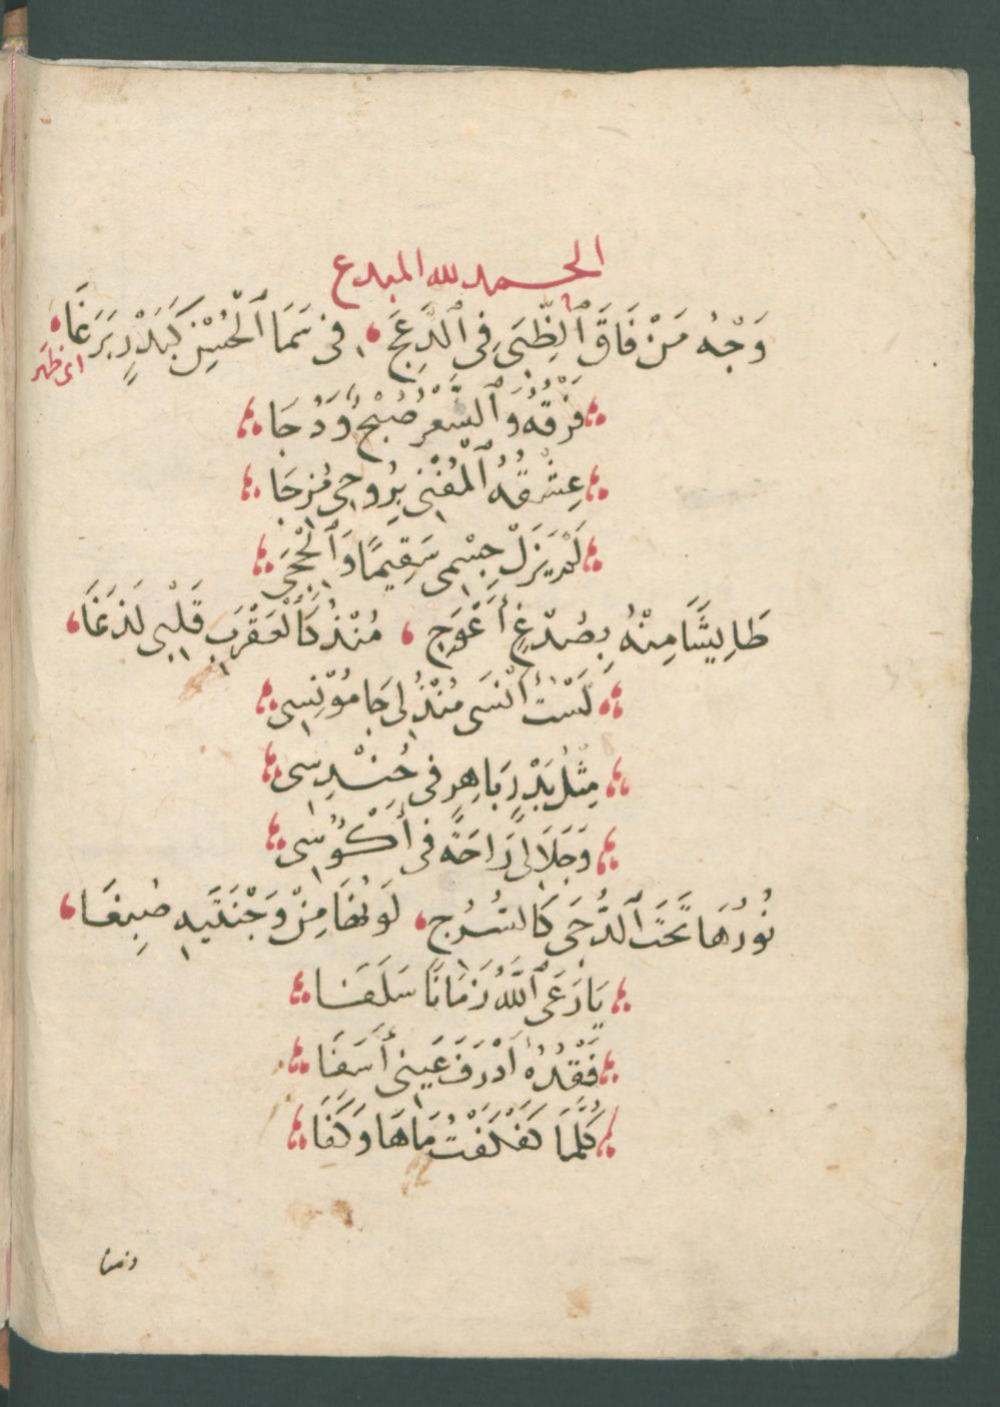 الحمد لله المبدع
وَجْهُ مَنْ فَاقَ ٱلظِّبَى فِى ٱلدَّعَجِ ، فِى سَمَا ٱلْحُسْنِ كَبَدْرٍ بَزَغَا ،
اى ظهر
فَرْقُهُ وَٱلشَّعْرُ صُبْحٌ وَدُجَا
عِشْقُهُ ٱلْمُفْنِى بِرُوحِى مُزِجَا
لَمْ يَزَلْ جِسْمِى سَقِيمًا وَٱلْحِجَى
طَايِشًا مِنْهُ بِصُدْغٍ أَعْوَجِ ، مُنْذُ كَٱلْعَقْرَبِ قَلْبِى لَدَغَا ،
لَسْتُ أَنْسَى مُنْذُ لِى جَا مُوْنِسِى
مِثْلُ بَدْرٍ بَاهِرٍ فى حُنْدِسِى
وَجَلَا لِى رَاحَةً فى أَكْوُسِى
نُورُهَا تَحْتَ ٱلدُّجَى كَالسُّرُجِ ، لَونُهَا مِنْ وَجْنَتَيهِ صُبِغَا ،
يَا رَعَى ٱللَّهُ زَمَانًا سَلَفَا
فَقْدُهُ أَذْرَفَ عَينِى أَسَفَا
كُلَّمَا كَفْكَفْتُ مَاهَا وَكَفَا